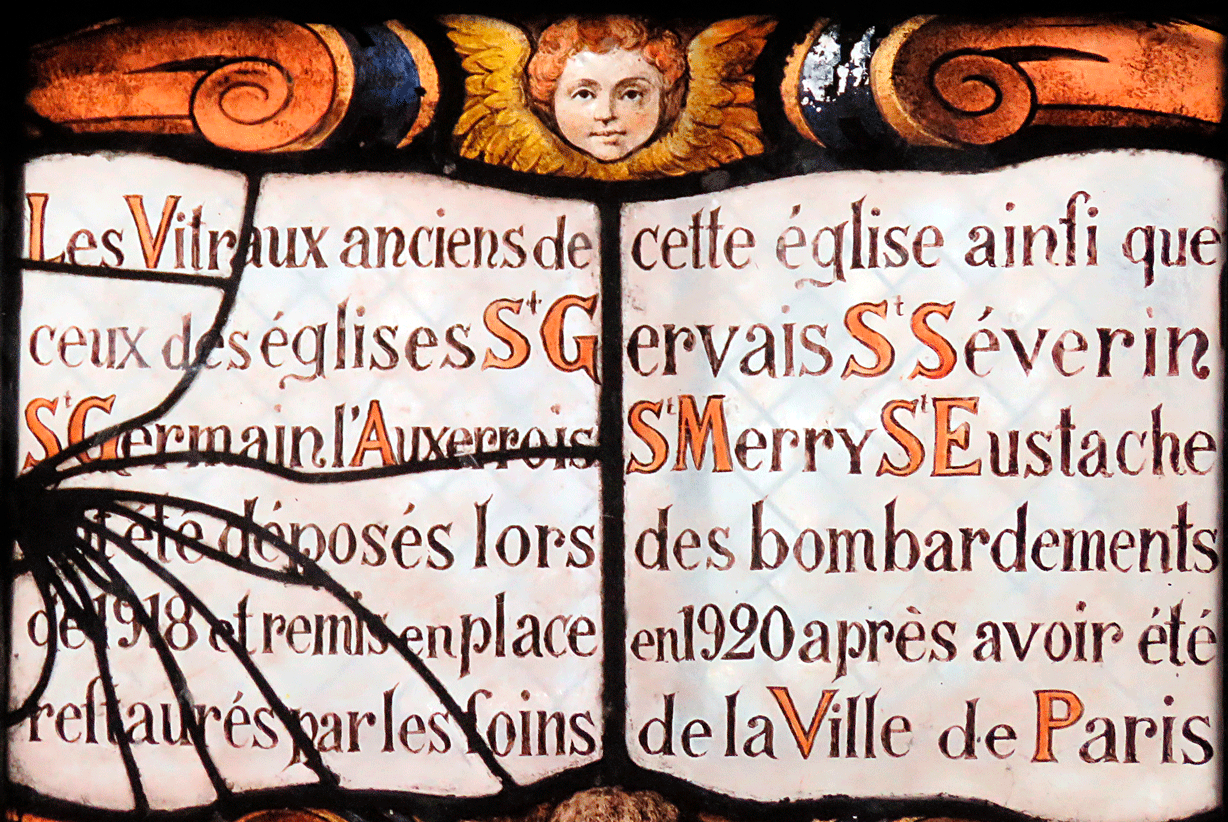 Les Vitraux anciens de cette église ainſi que
ceux des églises St Gervais St Séverin
St Germain l'Auxerrois St Merry St Eustache
été déposés lors des bombardements
de 1918 et remis en place en 1920 après avoir été
reſtaurés par les ſoins de la Ville de Paris